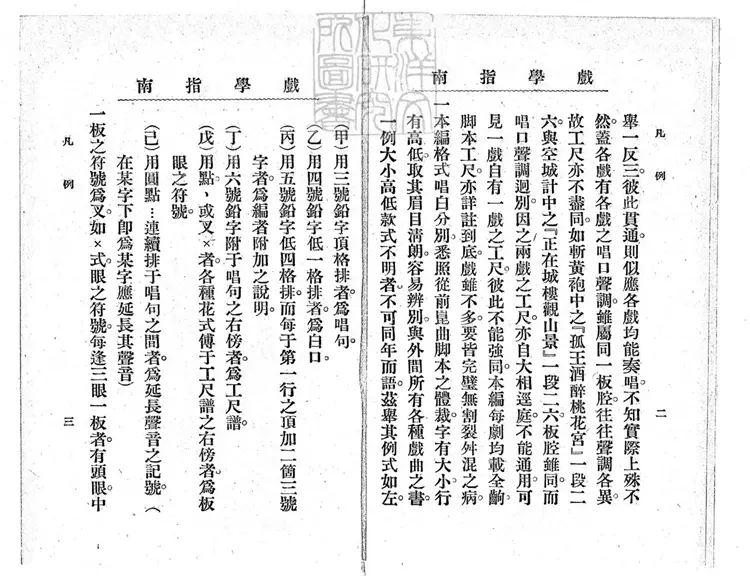 戲學指南
凡例
二
舉一反三。彼此貫通。則似應各戲均能奏唱。不知實際上殊不
然。蓋各戲有各戲之唱口聲調。雖屬同一板腔。往往聲調各異。
故工尺亦不盡同。如斬黃袍中之『孤王酒醉桃花宮』一段二
六。與空城計中之『正在城樓觀山景』一段二六。板腔雖同。而
唱口聲調迥別。因之兩戲之工尺。亦自大相逕庭。不能通用。可
見一戲自有一戲之工尺。彼此不能強同。本編每劇均載全齣
脚本。工尺亦詳註到底。戲雖不多。要皆完璧。無割裂舛混之病。
一本編格式。唱白分別。悉照從前崑曲脚本之體裁。字有大小。行
有高低。取其眉目清朗。容易辨別。與外間所有各種戲曲之書。
一例大小高低。款式不明者。不可同年而語。茲舉其例式如左。
戲學指南
（甲）用三號鉛字頂格排者。爲唱句。
（乙）用四號鉛字低一格排者。爲白口。
（丙）用五號鉛字低四格排。而每于第一行之頂加二箇三號
字者。爲編者附加之說明。
（丁）用六號鉛字附于唱句之右傍者。爲工尺譜。
（戊）用點、或叉×者。各種花式傅于工尺譜之右傍者。爲板
眼之符號。
（己）用圓點…連續排于唱句之間者。爲延長聲音之記號。（
在某字下卽爲某字應延長其聲音）
一板之符號爲叉。如×式。眼之符號。每逢三眼一板者。有頭眼中
凡例
三